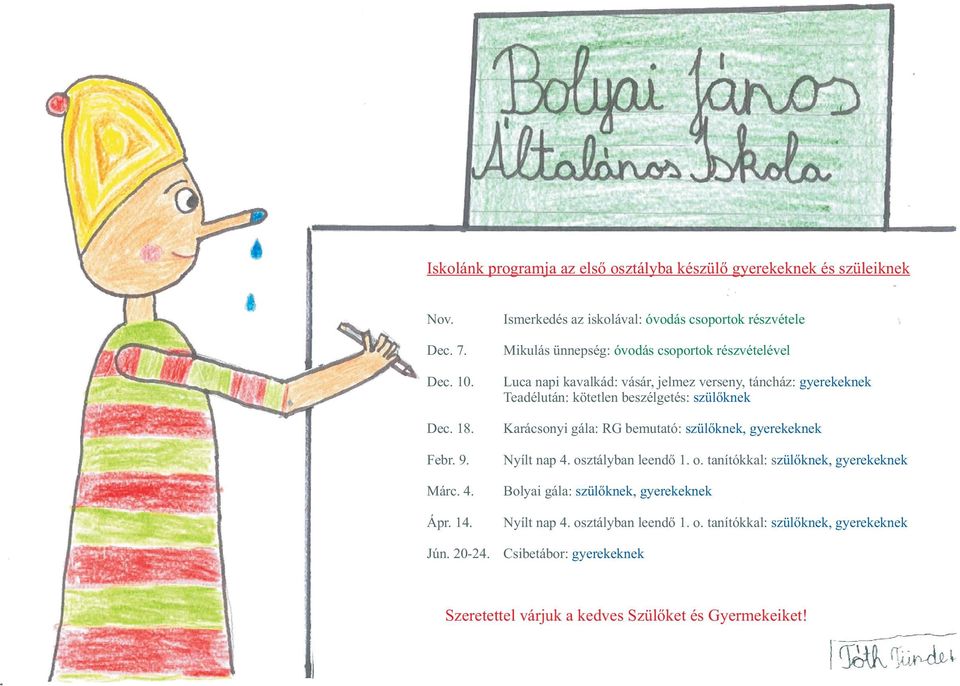 Bolyai János
Általános Iskola
Iskolánk programja az első osztályba készülő gyerekeknek és szüleiknek
Nov. Ismerkedés az iskolával: óvodás csoportok részvétele
Dec. 7. Mikulás ünnepség: óvodás csoportok részvételével
Dec. 10. Luca napi kavalkád: vásár, jelmez verseny, táncház: gyerekeknek
Teadélután: kötetlen beszélgetés: szülőknek
Dec. 18. Karácsonyi gála: RG bemutató: szülőknek, gyerekeknek
Febr. 9. Nyílt nap 4. osztályban leendő 1. o. tanítókkal: szülőknek, gyerekeknek
Márc. 4. Bolyai gála: szülőknek, gyerekeknek
Ápr. 14. Nyílt nap 4. osztályban leendő 1. o. tanítókkal: szülőknek, gyerekeknek
Jún. 20-24. Csibetábor: gyerekeknek
Szeretettel várjuk a kedves Szülőket és Gyermekeiket!
Tóth Tünde